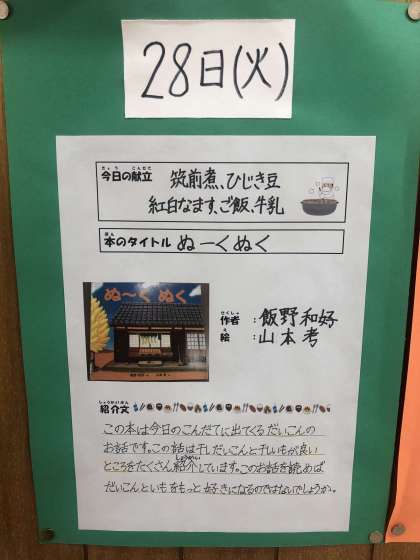 28日(火)
今日の献立 筑前煮、ひじき豆
紅白なます、ご飯、牛乳
本のタイトル ぬーくぬく
ぬ〜くぬく
作者 : 飯野和好
絵 : 山本考
紹介文
この本は今日のこんだてに出てくるだいこんの
お話です。この話は干しだいこんと干しいもが良い
ところをたくさん紹介しています。このお話を読めば
だいこんといもをもっと好きになるのではないでしょうか。